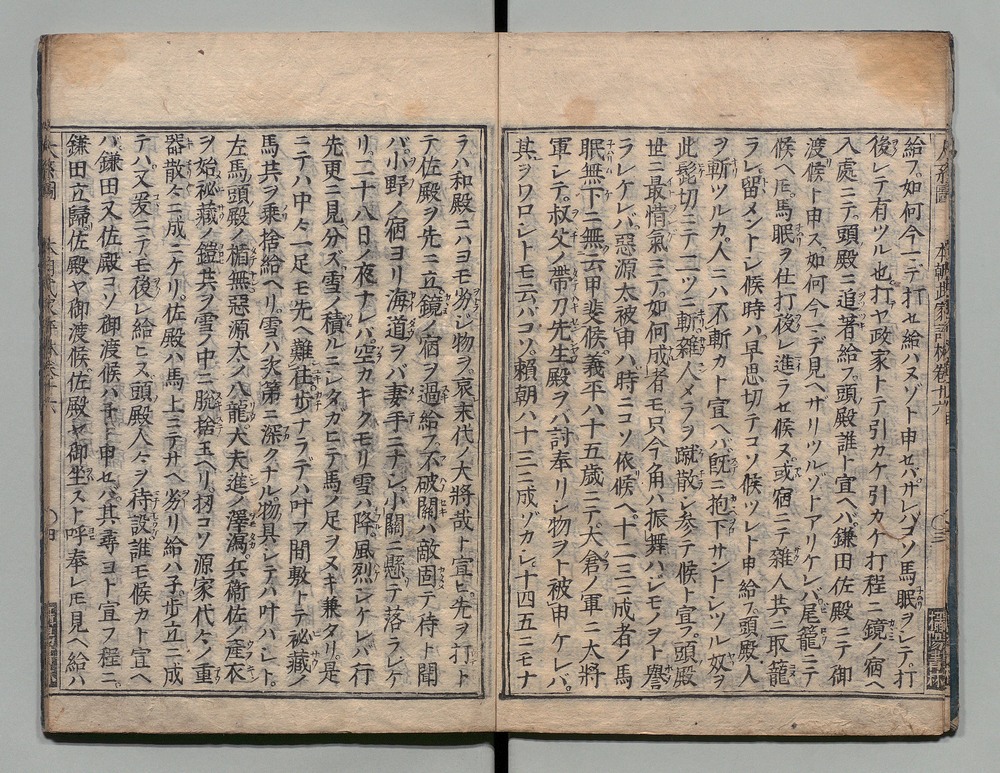 給フ如何今ニデ打セ給ハヌゾト申セバサレバコソ馬眠ヲシテ打
後レテ有ツル也打ヤ政家トテ引カケ引カケ打程ニ鏡ノ宿ヘ
入處ニテ頭殿ニ追著給フ頭殿誰ト宣ヘバ鎌田佐殿ニテ御
渡候ト申ス如何今ニデ見ヘサリツルゾトアリケレバ尾籠ニテ
候ヘ𪜈馬眠ヲ仕打後レ進ラセ候ス或宿ニテ雜人共ニ取籠
ラレ留メントシ候時ハ早思切テコソ候ツレト申給フ頭殿人
ヲ斬ツルカ人ニハ不斬カト宣ヘバ既ニ抱下サントシツル奴ヲ
此髭切ニテ二ツニ斬雜人メラヲ蹴散シ參テ候ト宣フ頭殿
世ニ最惜氣ニテ如何成者モ只今角ハ振舞ハレモノヲト譽
ラレケレバ惡源太被申ハ時ニコソ依候ヘ十二三ニ成者ノ馬
眠無下ニ無云甲斐候義平ハ十五歲ニテ大倉ノ軍ニ大將
軍シテ叔父ノ帶刀先生殿ヲバ討奉リシ物ヲト被申ケレバ
其ヲワロシトモ云バコソ賴朝ハ十三ニ成ゾカシ十四五ニモナ
ラハ和殿ニハヨモ劣ジ物ヲ哀末代ノ大將哉ト宣ヒ先ヲ打ト
テ佐殿ヲ先ニ立鏡ノ宿ヲ過給フ不破關ハ敵固テ待ト聞
バ小野ノ宿ヨリ海道ヲバ妻手ニナシ小關ニ懸テ落ラレケ
リ二十八日ノ夜ナレバ空カキクモリ雪ハ降風烈シケレバ行
先更ニ見分ズ雪ノ積ルニシタカヒテ馬ノ足ヲヌキ兼タリ是
ニテハ中々一足モ先ヘ難往歩ナラデハ叶フ間敷トテ秘藏ノ
馬共ヲ乘捨給ヘリ雪ハ次第ニ深クナル物具シテハ叶ハシト
左馬頭殿ノ楯無惡源太ノ八龍大夫進ノ澤瀉兵衛佐ノ產衣
ヲ始祕藏ノ鎧共ヲ雪ノ中ニ脫捨玉ヘリ扨コソ源家代々ノ重
器散々ニ成ニケリ佐殿ハ馬上ニテサヘ劣リ給ハ子歩立ニ成
テハ又爰ニテモ後レ給ヒス頭殿人々ヲ待設誰モ候カト宣ヘ
バ鎌田又佐殿コソ御渡候ハ子ト申セバ其尋ヨト宣フ程ニ
鎌田立歸佐殿ヤ御渡候佐殿ヤ御坐スト呼奉レ𪜈見ヘ給ハ